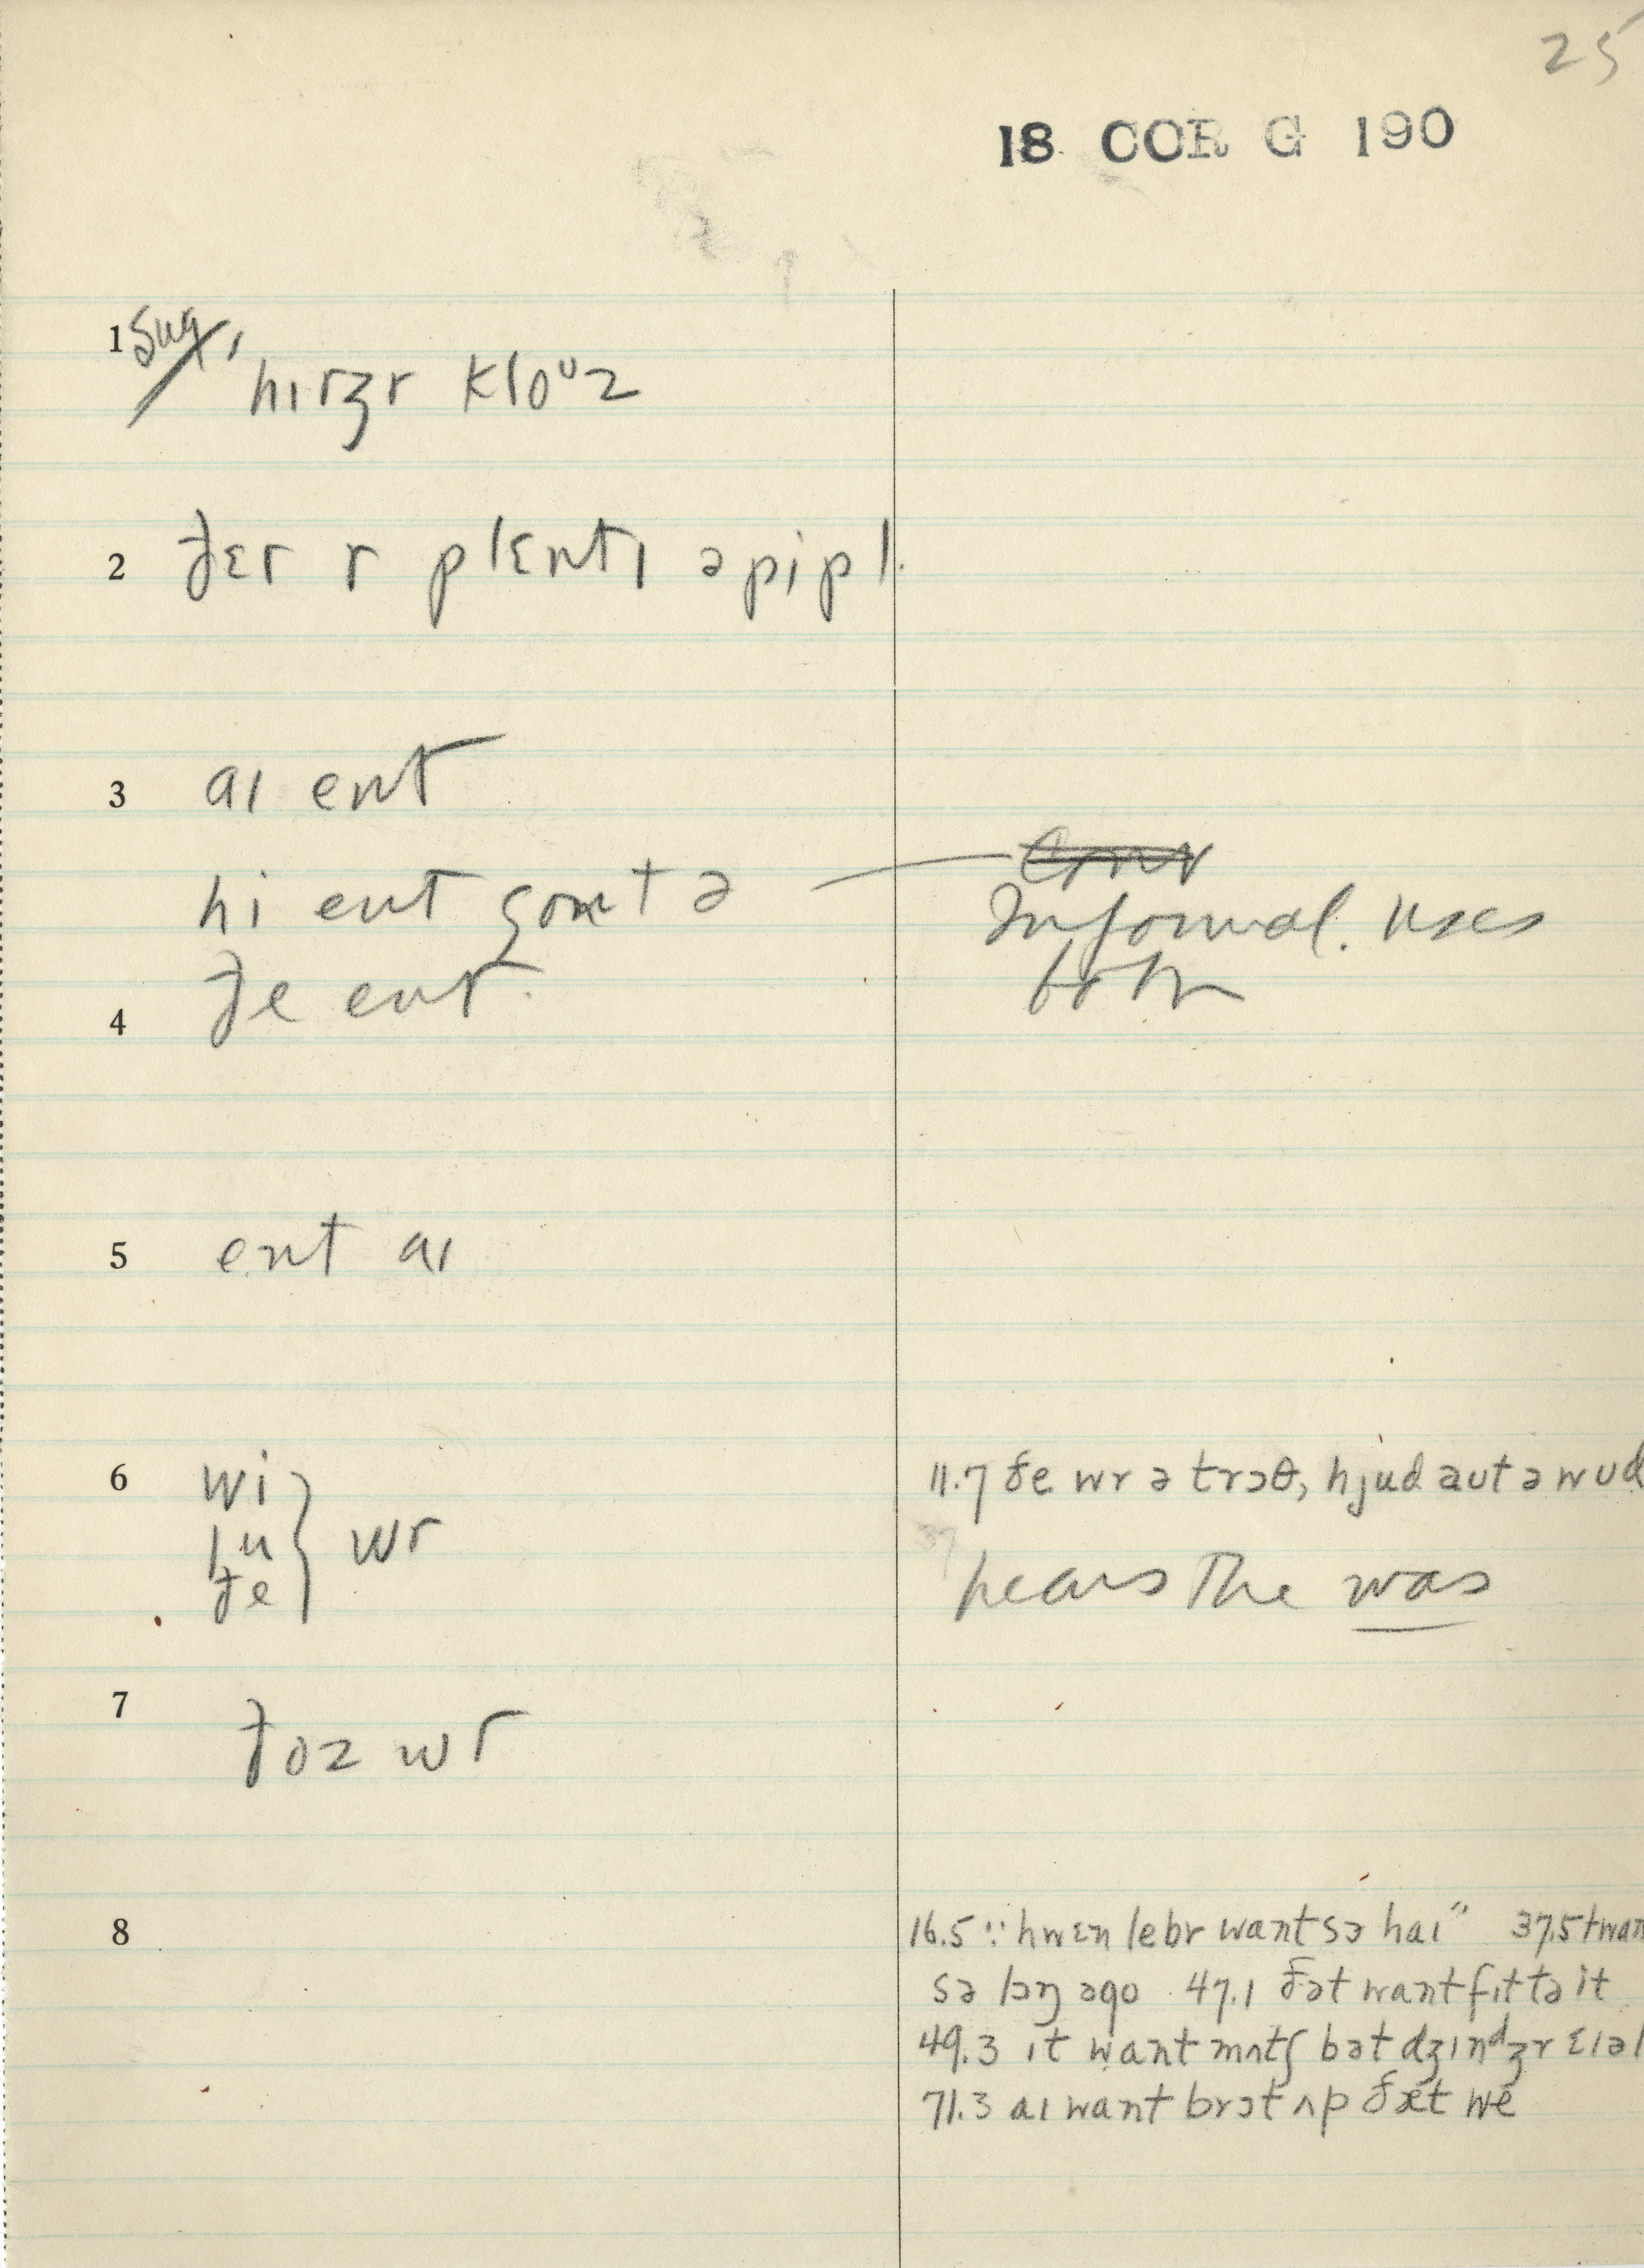 25
18 COR G 190
1 Sug. hɪrʒr kloᶷz
2 ðɛr r plɛntɪ əpipl
3 aɪ ent
hi ent gontə — Informal. Uses
4 ðe ent both
5 ent aɪ
6 wi 11.7 ðe wr ə trɔθ, hjud aut ə wud
ju } wr
ðe hears the was
7 ðoz wr
8 16.5 :: hwɛn lebr want sə haɪ" 37.5 twant
sə lɔŋ əgo 47.1 ðət want fɪt tə it
49.3 ɪt want mʌtʃ bət dʒɪnᵈʒr ɛɪəl
71.3 aɪ want brɔt ʌp ðæt we